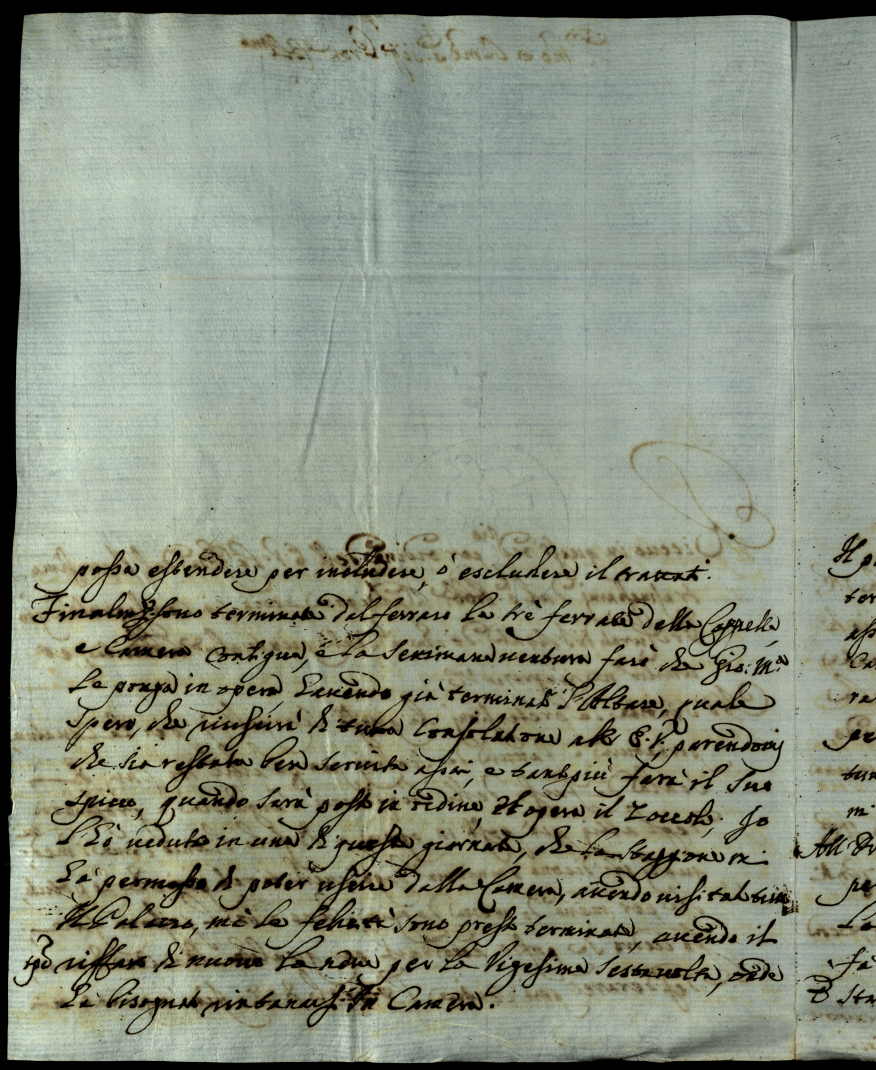 possa estendere per includere, ò escludere il trattato.
Finalm.te sono terminate dal ferraro le trè ferrate della Cappella,
e Camera contigua, e la Settimana ventura farò che Gio: M.a
le ponga in opera, havendo già terminato l'Altare, quale
spero, che riuscirà di tutta Consolatione a V. E. parendomi
che sia restata ben servita assai, e tanto più farà il suo
spicco, quando sarà posto in ordine, et opera il Zoccolo; Jo
l'hò veduto in una di queste giornate, che la staggione mi
hà permesso di poter uscire dalla Camera, avendo visitato
Il Palazzo, mà le felicità sono presto terminate, avendo il
tpo riffatto di nuovo la neve per la Vigesima sesta volta, onde
hà bisognato rintanarsi in Camera.
Il
ter
ass
Ca
ra
per
tut
mi
All
per
La
fà
Sta